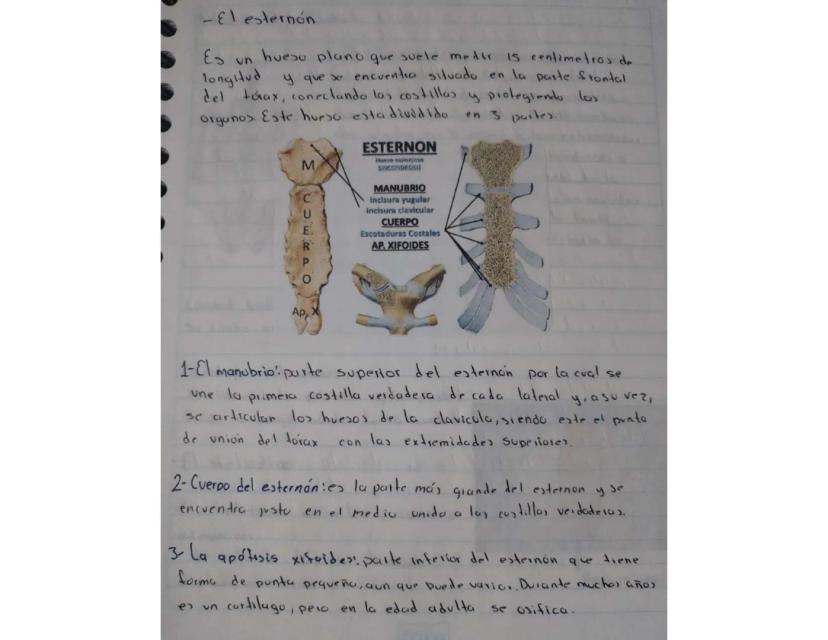 - El esternón
Es un hueso plano que suele medir 15 centimetros de
longitud y que se encuentra situado en la parte frontal
del tórax, conectando las costillas y protegiendo los
organos. Este hueso esta dividido en 3 partes.
ESTERNON
Hueso esponjoso
SINCONDROSIS
M
MANUBRIO
Incisura yugular
Incisura clavicular
CUERPO
Escotaduras Costales
AP. XIFOIDES
CUERPO
Ap. X
1-El manubrio: parte superior del esternón por la cual se
une la primera costilla verdadera de cada lateral y, a su vez,
se articulan los huesos de la clavicula, siendo este el punto
de unión del tórax con las extremidades superiores.
2-Cuerpo del esternón: es la parte más grande del esternon y se
encuentra justo en el medio unido a las costillas verdaderas.
3- La apófisis xifoides: parte inferior del esternón que tiene
forma de punta pequeña, aun que puede variar. Durante muchos años
es un cartilago, pero en la edad adulta se osifica.